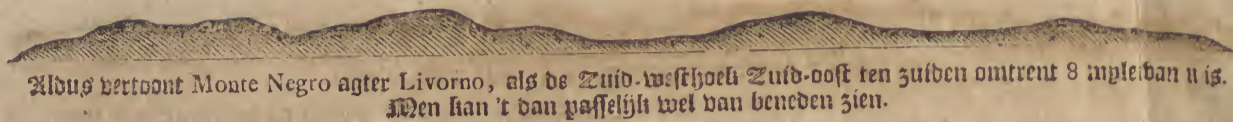 Aldus vertoont Monte Negro agter Livorno, als de Zuid-westhoek Zuid-oost ten zuiden omtrent 8 mylen van u is.
Men kan 't dan passelijk wel van beneden zien.